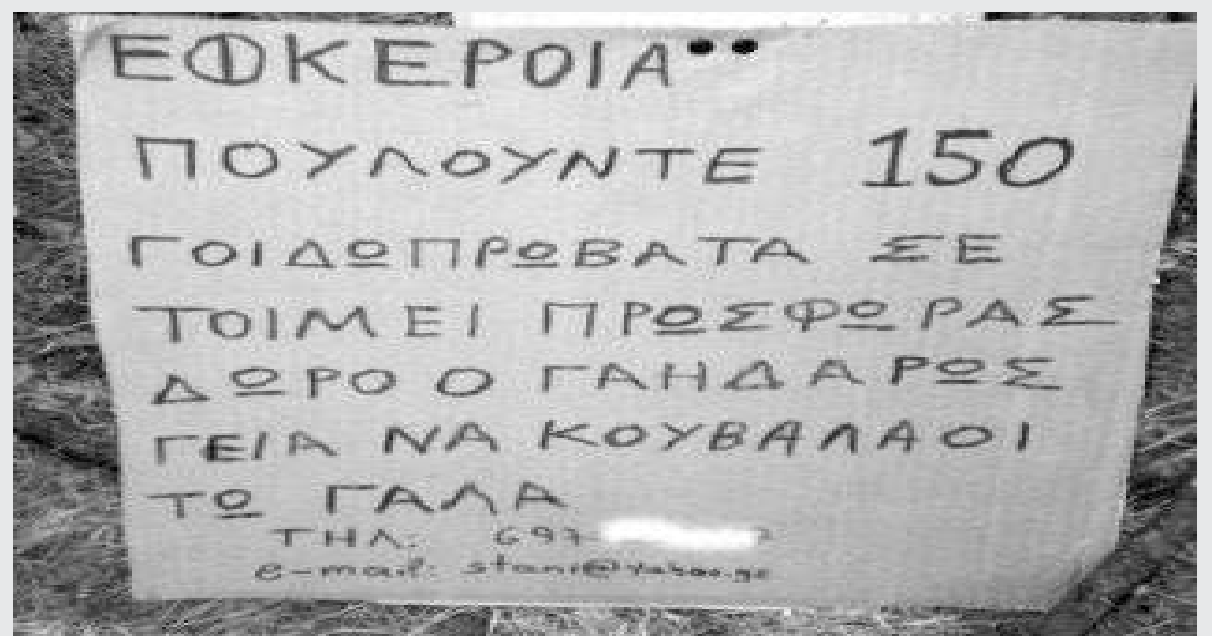 ΕΦΚΕΡΟΙΑ••
ΠΟΥΛΟΥΝΤΕ 150
ΓΟΙΔΩΠΡΩΒΑΤΑ ΣΕ
ΤΟΙΜΕΙ ΠΡΩΣΦΩΡΑΣ
ΔΩΡΟ Ο ΓΑΗΔΑΡΩΣ
ΓΕΙΑ ΝΑ ΚΟΥΒΑΛΑΟΙ
ΤΩ ΓΑΛΑ
ΤΗΛ: 697
e-mail: